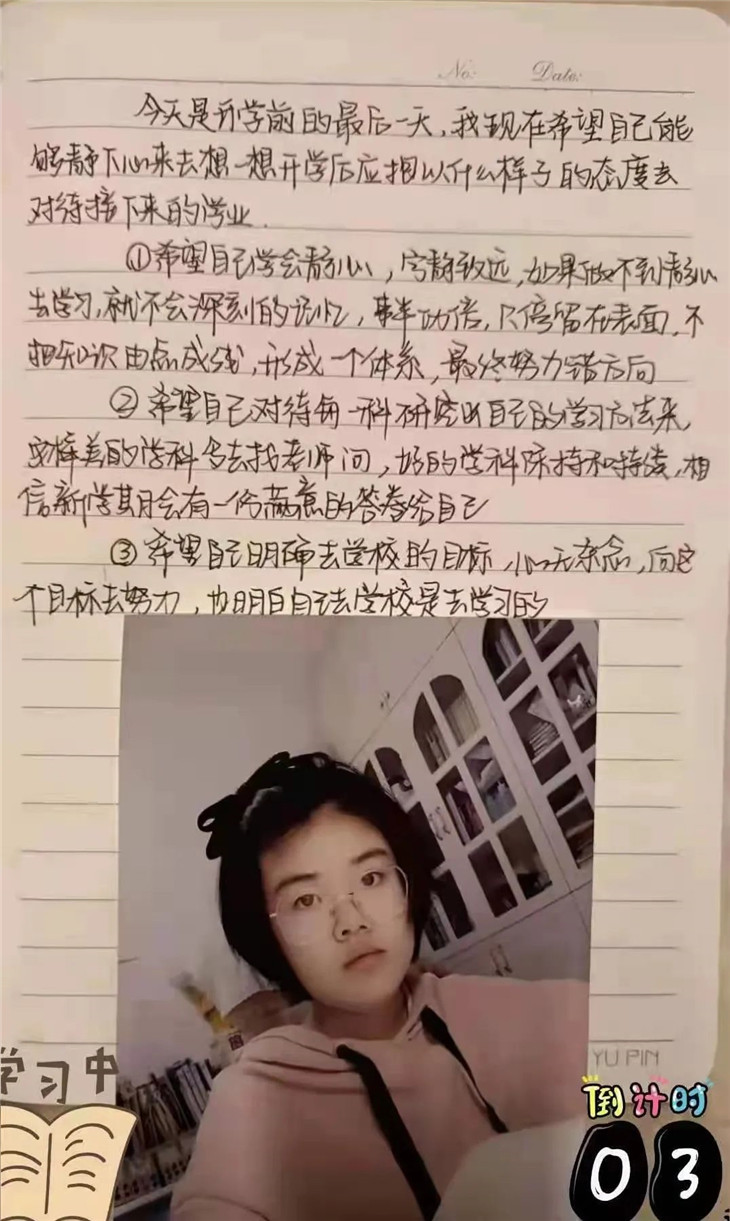 No: Date:
今天是开学前的最后一天,我现在希望自己能
够静下心来去想一想开学后应担以什么样子的态度去
对待接下来的学业.
①希望自己学会静心,宁静致远,如果做不到静心
去学习,就不会深刻的记忆,事半功倍,只停留在表面,不
把知识由点成线,形成一个体系,最终努力错方向
②希望自己对待每一科研究出自己的学习方法来,
美的学科多去找老师问,好的学科保持和持续,相
信新学期会有一份满意的答卷给自己
③希望自己明确去学校的目标,心无杂念,向这
个目标去努力,也明白自己去学校是去学习的
YU PIN
学习中
倒计时
03